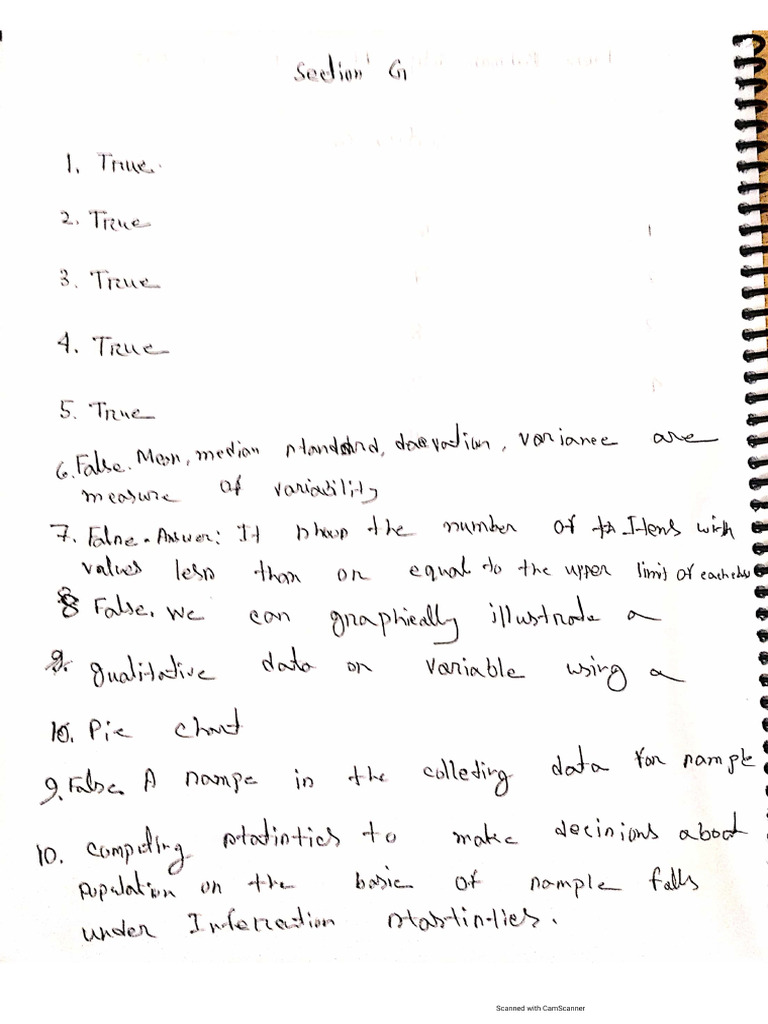 Section G
1. True.
2. True
3. True
4. True
5. True
6. False. Mean, median standard, daevation, variance are
measure of variability
7. False. Answer: It shows the number of Items with
values less than or equal to the upper limit of each class
8 False. we can graphically illustrate a
9. qualitative data or variable using a
10. Pie chart
9. False. A sampe is the colleting data for sample
10. Computing statistics to make decisions about
Population on the basic of sample falls
under Inferection stastisties.
Scanned with CamScanner